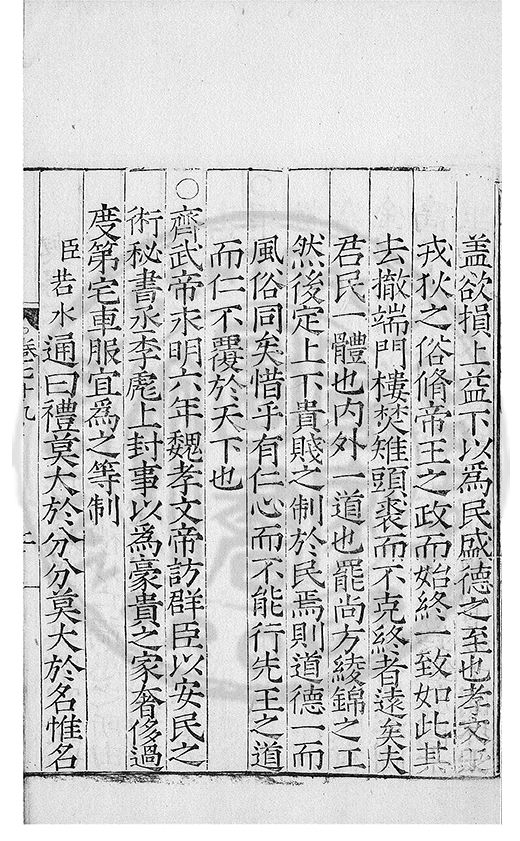 盖欲損上益下以爲民盛德之至也孝文
戎狄之俗脩帝王之政而始終一致如此其
去撤端門樓焚雉頭裘而不克終者遠矣夫
君民一體也内外一道也罷尚方綾錦之工
然後定上下貴賤之制於民焉則道德一而
風俗同矣惜乎有仁心而不能行先王之道
而仁不覆於天下也
○齊武帝永明六年魏孝文帝訪群臣以安民之
術秘書丞李彪上封事以爲豪貴之家奢侈過
度第宅車服宜爲之等制
臣若水通曰禮莫大於分分莫大於名惟名
卷七十九